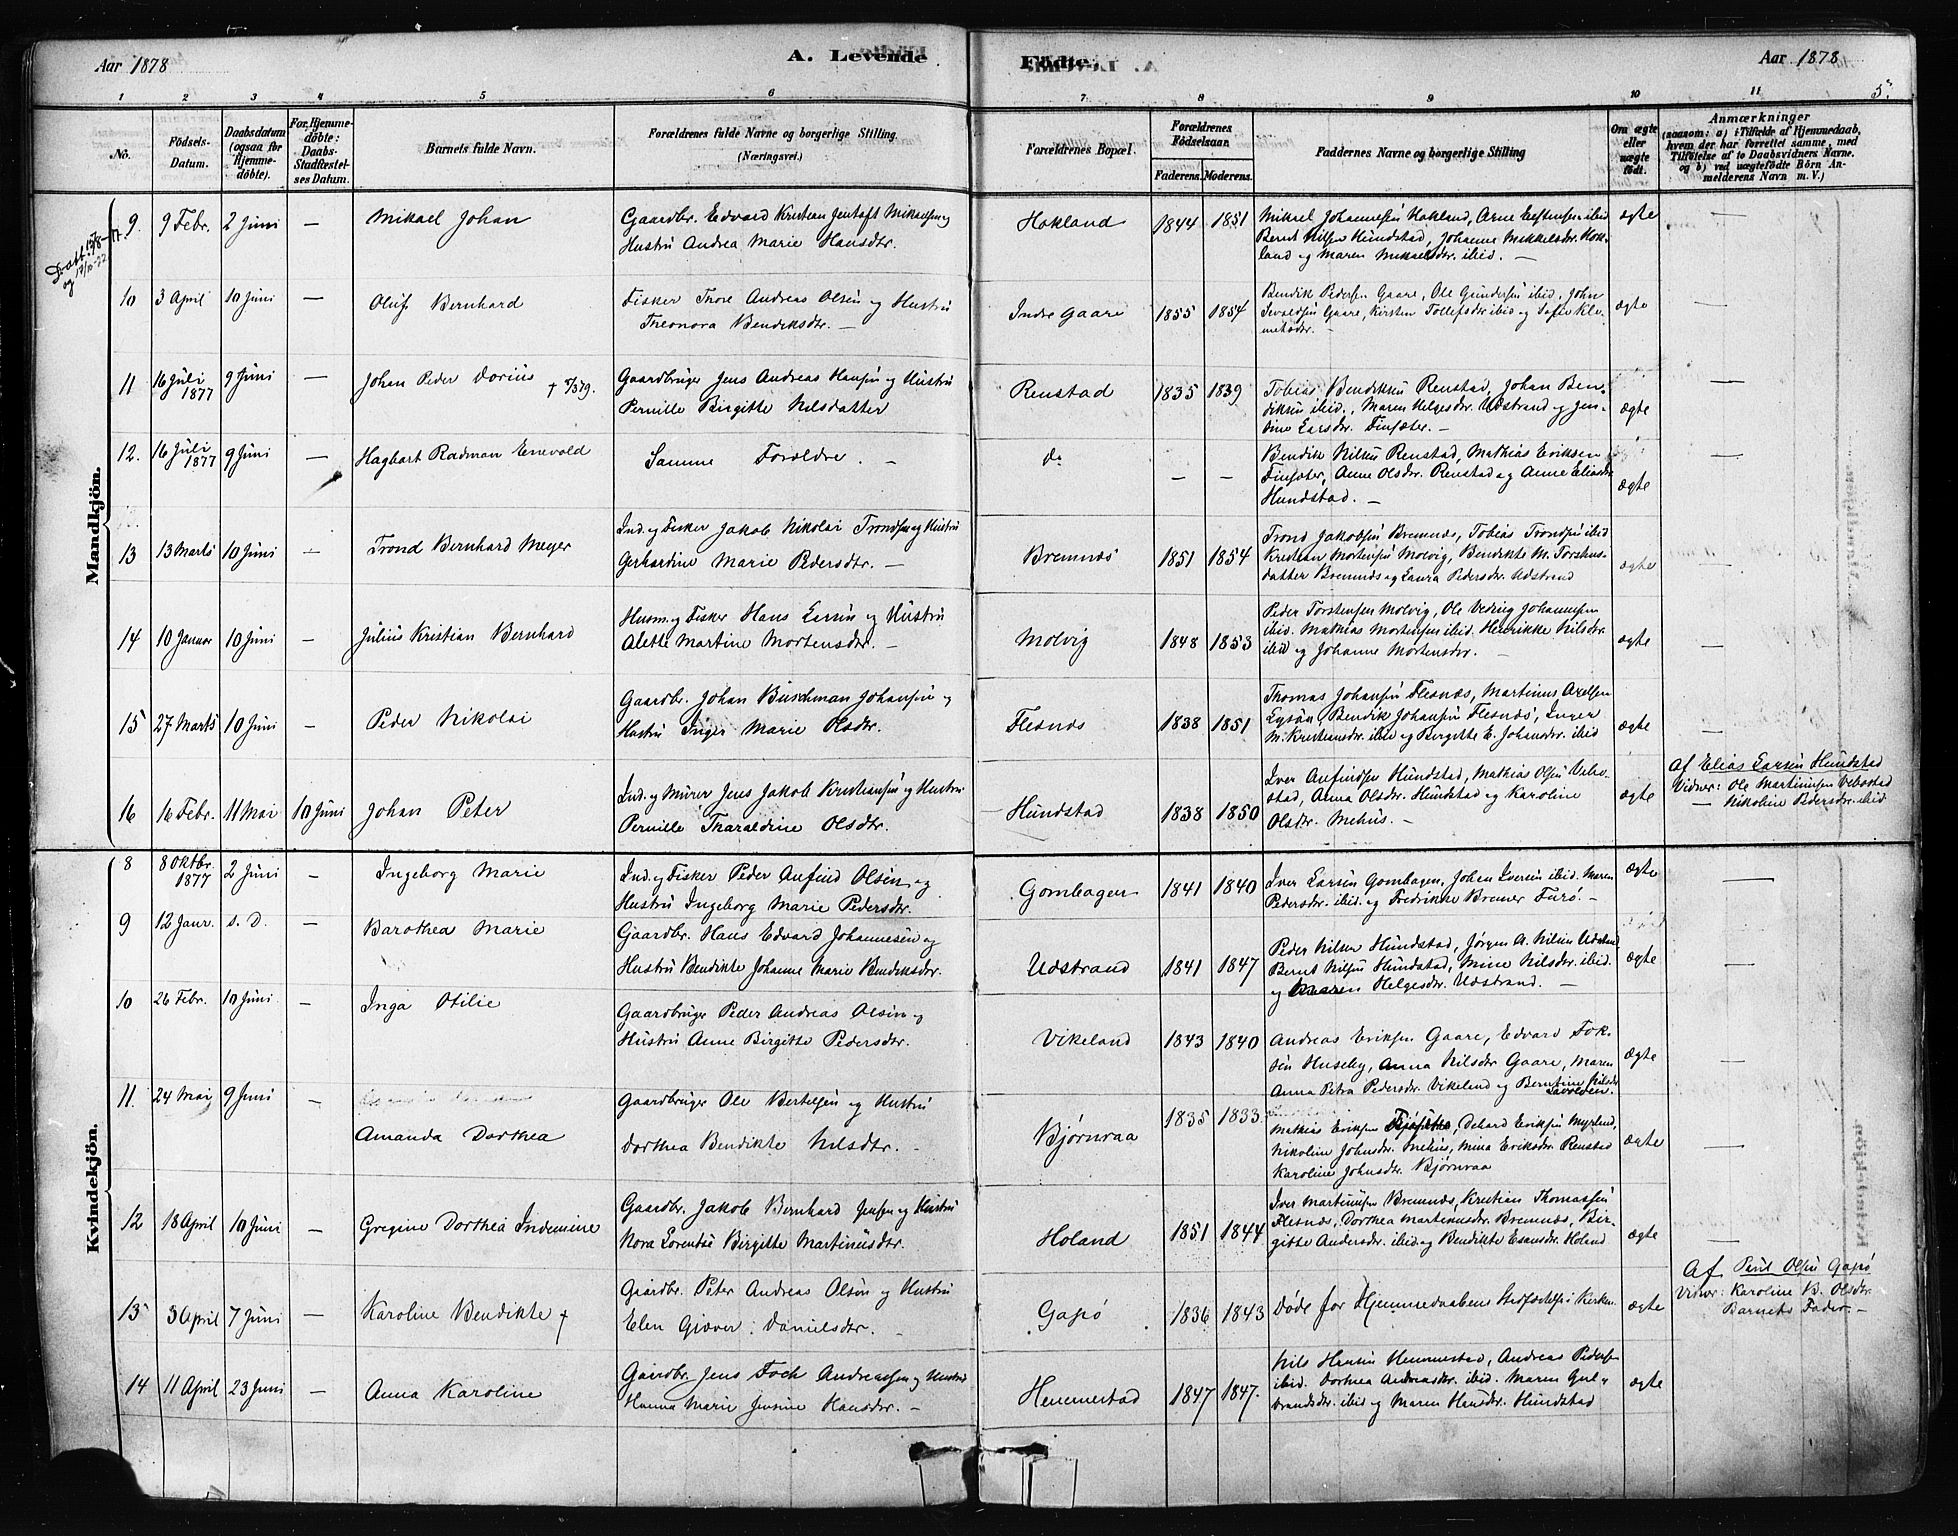 Aar 1878
A. Levende
Födte.
Aar 1878
5.
1 2 3 4 5 6 7 8 9 10 11
No.
Födsels-Datum.
Daabsdatum (ogsaa for Hjemmedöbte).
For Hjemmedöbte: Daabs-Stadfæstelses Datum.
Barnets fulde Navn.
Forældrenes fulde Navne og borgerlige Stilling.
(Næringsvei.)
Forældrenes Bopæl.
Forældrenes Födselsaar.
Faderens. Moderens.
Faddernes Navne og borgerlige Stilling
Om ægte eller uægte födt.
Anmærkninger
(saasom: a) i Tilfælde af Hjemmedaab, hvem der har forrettet samme, med Tilföielse af to Daabsvidners Navne. og b) ved uægtefödte Börn Anmelderens Navn m. V.)
Mandkjön.
9. 9 Febr. 2 Juni — Mikael Johan
Gaardbr. Edvard Kristian Jentoft Mikaelsen og
Hustru Andrea Marie Hansdtr.
Hokland 1844 1851
Mikael Johannesen Hokland, Arne Eestensen ibid
Bernt Nilsen Hundstad, Johanne Mikkelsdr. Hok-
land og Maren Mikaelsdr. ibid. —
ægte —
10 3 April 10 Juni — Oluf Bernhard
Fisker Thore Andreas Olsen og Hustru
Theonora Bendiksdtr. —
Indre Gaare 1855 1854
Bendik Pedersen Gaare, Ole Gundersen ibid. John
Gaare, Kirsten Tollefsdr ibid og Sofie Kle-
metsdr. —
ægte —
11 16 Juli 1877 9 Juni — Johan Peder Dorius †
Gaardbruger Jens Andreas Hansen og Hustru
Pernille Birgitte Nilsdatter
Renstad 1835 1839
Tobias Bendiksen Renstad, Johan Ben-
diksen ibid., Maren Helgesdr. Udstrand og Jen-
sine Larsdr. Finsæter. —
ægte —
12. 16 Juli 1877 9 Juni — Hagbart Radman Enevold
Samme Forældre. —
do — —
Bendik Nilsen Renstad, Mathias Eriksen
Finsæter, Anne Olsdr. Renstad og Anne Eliasdr
Hundstad. —
ægte —
13 13 Marts 10 Juni — Trond Bernhard Meyer
Ind. og Fisker Jakob Nikolai Trondsen og Hustru
Gerhardine Marie Pedersdtr. —
Bremnæs 1851 1854
Trond Jakobsen Bremnæs, Tobias Trondsen ibid
Kristian Mortensen Molvig, Bendikte M. Torstens-
datter Bremnæs og Laura Pedersdr. Udstrand
ægte —
14 10 Januar 10 Juni — Julius Kristian Bernhard
Husm. og Fisker Hans Larsen og Hustru
Alette Martine Mortensdtr. —
Molvig 1848 1853
Peder Torstensen Molvig, Ole Vedinig Johannesen
ibid. Mathias Mortensen ibid. Henrikke Nilsdr.
ibid og Johanne Mortensdr. —
ægte —
15 27 Marts 10 Juni — Peder Nikolai
Gaardbr. Johan Buschman Johansen og
Hustru Inger Marie Olsdtr.
Flesnæs 1838 1851
Thomas Johansen Flesnæs, Martinus Axelsen
Bendik Johansen Flesnæs, Inger
M. Kristiansdr. ibid og Birgitte E. Johansdr. ibid
ægte —
16 16 Febr. 11 Mai 10 Juni Johan Peter
Ind. og Murer Jens Jakob Kristiansen og Hustru
Pernille Tharaldine Olsdtr.
Hundstad 1838 1850
Iver Anfindsen Hundstad, Mathias Olsen Vebo-
stad, Anna Olsdr. Hundstad og Karoline
Olsdtr. Mehus. —
ægte
Af Elias Larsen Hundstad
Vidner: Ole Martinusen Vebostad
— Nikoline Pedersdr. ibid
Kvindekjön.
8 8 Oktbr. 1877 2 Juni — Ingeborg Marie
Ind. og Fisker Peder Anfind Olsen og
Hustru Ingeborg Marie Pedersdtr.
Gombogen 1841 1840
Iver Larsen Gombogen, Johan Iversen ibid. Maren
Pedersdtr. ibid. og Fredrikke Bremer Furø. —
ægte —
9 12 Janr. s. D. — Barothea Marie
Gaardbr. Hans Edvard Johannesen og
Hustru Bendikte Johanne Marie Bendiksdtr.
Udstrand 1841 1847
Peder Nilsen Hundstad, Jørgen A. Nilsen Udstrand
Bernt Nilsen Hundstad, Mine Nilsdr. ibid.
og Maren Helgesdr. Udstrand. —
ægte —
10 26 Febr. 10 Juni — Inga Otilie
Gaardbruger Peder Andreas Olsen og
Hustru Anne Birgitte Pedersdtr.
Vikeland 1843 1840
Andreas Eriksen Gaare, Edvard Fok-
sen Huseby, Anna Nilsdtr Gaare, Maren
Anna Petra Pedersdr. Vikeland og Berntine Nilsdr
ægte —
11. 24 Mai 9 Juni —
Amanda Dorthea
Gaardbruger Ole Bertelsen og Hustru
Dorthea Bendikte Nilsdtr. —
Bjørnraa 1835 1833.
Mathias Eriksen Dehard Eriksen Myrland,
Nikoline Johnsdr. Mehus, Mina Eriksdr. Renstad
Karoline Johnsdtr. Bjørnraa
ægte —
12 18 April 10 Juni — Gregine Dorthea Indemine
Gaardbr. Jakob Bernhard Jensen og Hustru
Nora Lorentse Birgitte Martinusdtr.
Holand 1851 1844
Iver Martinusen Bremnæs, Kristian Thomassen
Flesnæs, Dorthea Martinusdr. Bremnæs, Bir-
gitte Andersdr. ibid. og Bendikte Esausdr. Holand
ægte —
13 3 April 7 Juni — Karoline Bendikte †
Gaardbr. Peter Andreas Olsen og Hustru
Elen Giæver Danielsdtr. —
Gapø 1836 1843
Døde før Hjemmedaabens Stadfæstelse i Kirken.
ægte
Af Paul Olsen Gapø
Vidner: Karoline B. Olsdtr.
Barnets Fader. —
14 11 April 23 Juni — Anna Karoline
Gaardbr. Jens Foch Andreassen og Hustru
Hanna Marie Jensine Hansdtr. —
Hemmestad 1847 1847.
Nils Hansen Hemmestad, Andreas Pedersen
ibid. Dorthea Andreasdr. ibid. Maren Gul-
brandsdr. ibid og Maren Hansdr. Hundstad
ægte